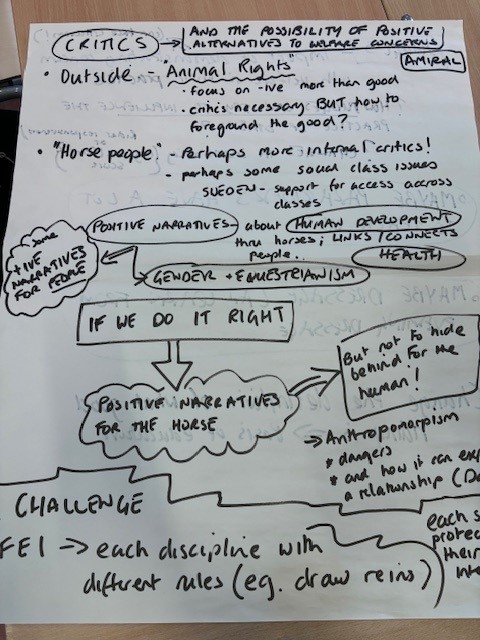 CRITICS → AND THE POSSIBILITY OF POSITIVE
ALTERNATIVES TO WELFARE CONCERNS
AMIRAL
• Outside - "Animal Rights"
• focus on -ive more than good
• critics necessary BUT how to
foreground the good?
• "Horse people" - Perhaps more internal critics!
- perhaps some social class issues
SUEDEN - support for access across
classes
POSITIVE NARRATIVES - about HUMAN DEVELOPMENT
thro horses; LINKS/CONNECTS
people..
HEALTH
some
+IVE
NARRATIVES
FOR PEOPLE
GENDER + EQUESTRIANISM
IF WE DO IT RIGHT
But not to hide
behind for the
human!
POSITIVE NARRATIVES
FOR THE HORSE
→ Anthropomorpism
* dangers
* and how it can exp
a relationship (Do
CHALLENGE
FEI → each discipline with
different rules (eg. draw reins)
each s
protec
their
inte